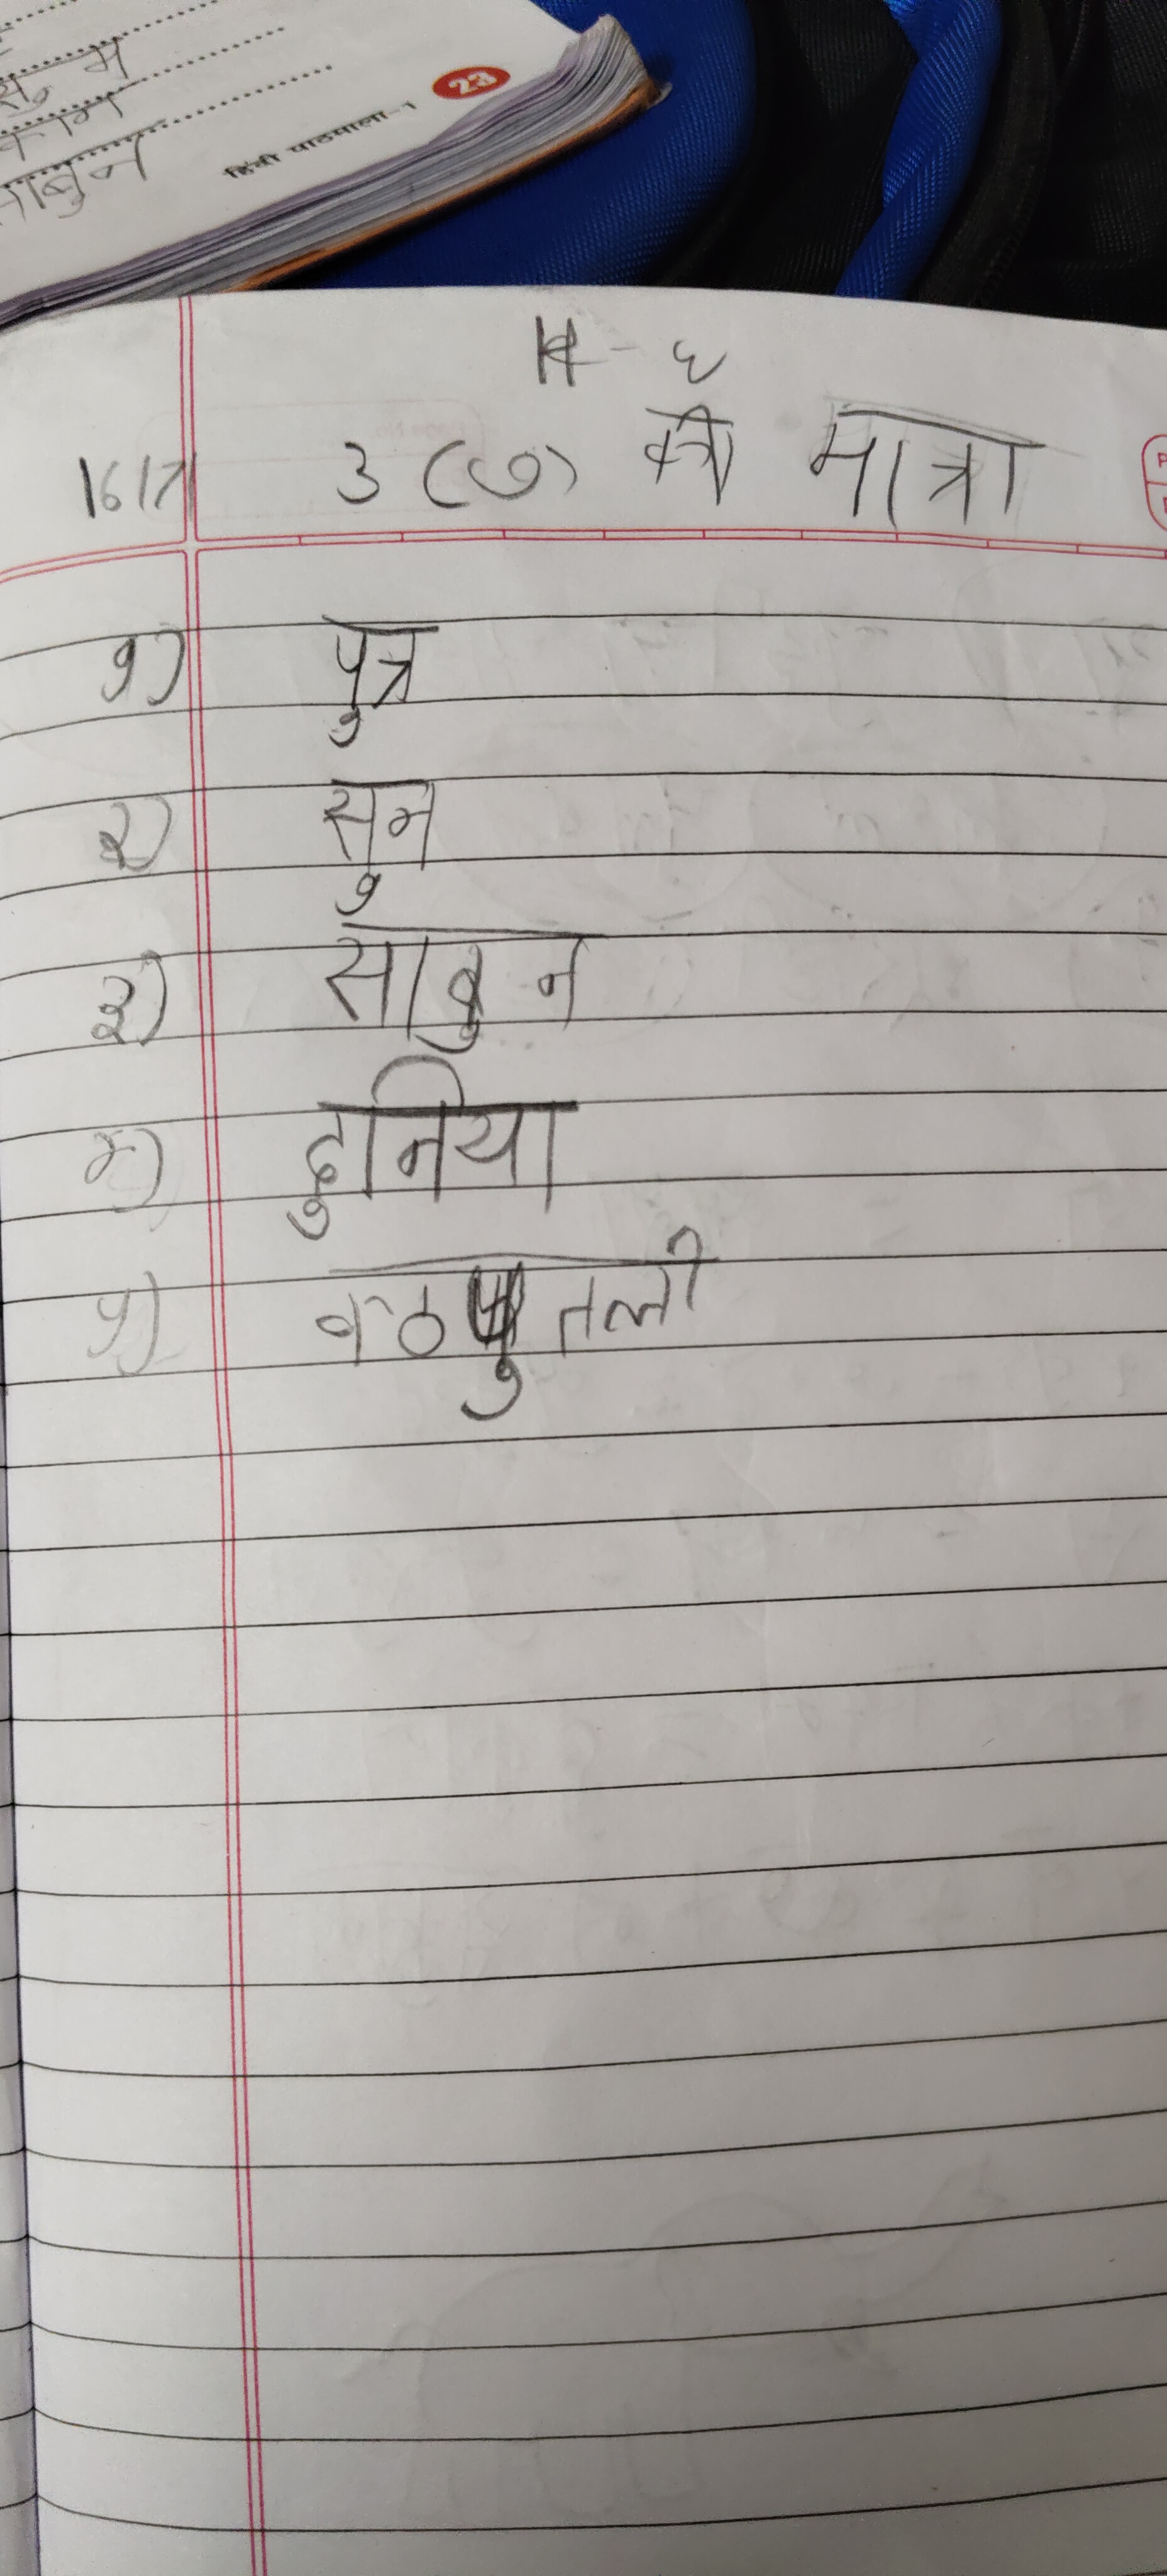 कान
साबुन
23
हिंदी पाठमाला-1
16/7
उ (ु) की मात्रा
१) पुत्र
२) सुन
३) साबुन
४) दुनिया
५) कठपुतली